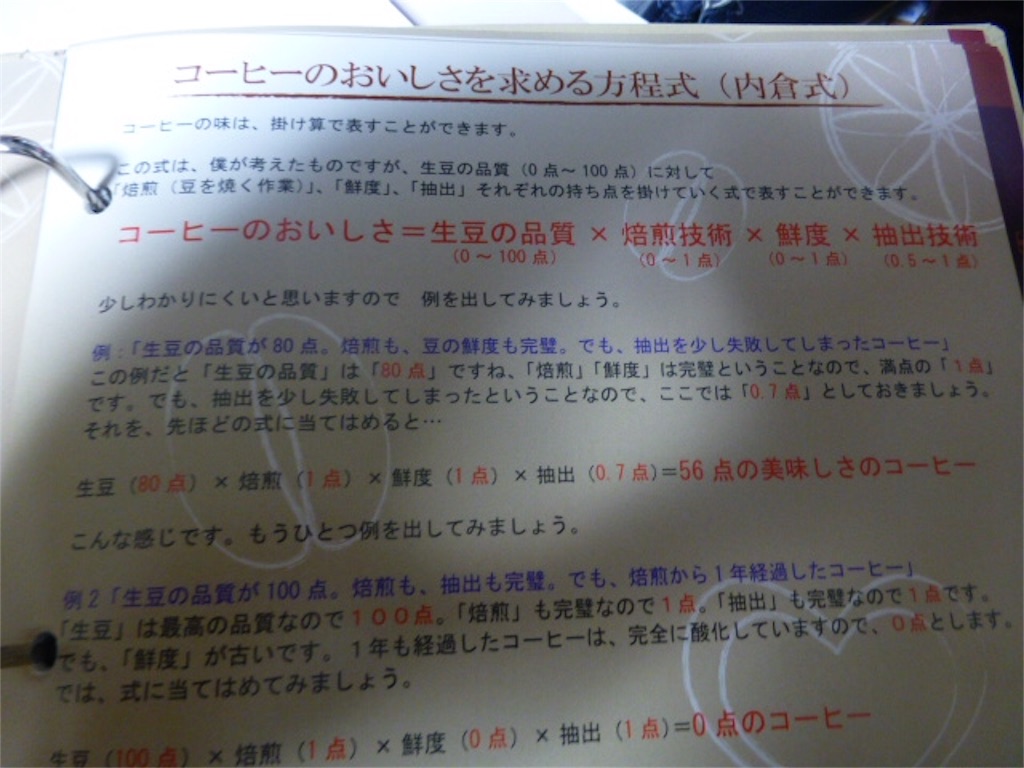 コーヒーのおいしさを求める方程式（内倉式）
コーヒーの味は、掛け算で表すことができます。
この式は、僕が考えたものですが、生豆の品質（0点～100点）に対して
「焙煎（豆を焼く作業）」、「鮮度」、「抽出」それぞれの持ち点を掛けていく式で表すことができます。
コーヒーのおいしさ＝生豆の品質 × 焙煎技術 × 鮮度 × 抽出技術
（0～100点） （0～1点） （0～1点） （0.5～1点）
少しわかりにくいと思いますので　例を出してみましょう。
例：「生豆の品質が80点。焙煎も、豆の鮮度も完璧。でも、抽出を少し失敗してしまったコーヒー」
この例だと「生豆の品質」は「80点」ですね、「焙煎」「鮮度」は完璧ということなので、満点の「1点」
です。でも、抽出を少し失敗してしまったということなので、ここでは「0.7点」としておきましょう。
それを、先ほどの式に当てはめると…
生豆（80点）× 焙煎（1点）× 鮮度（1点）× 抽出（0.7点）=56点の美味しさのコーヒー
こんな感じです。もうひとつ例を出してみましょう。
例2「生豆の品質が100点。焙煎も、抽出も完璧。でも、焙煎から1年経過したコーヒー」
「生豆」は最高の品質なので１００点。「焙煎」も完璧なので1点。「抽出」も完璧なので1点です。
でも、「鮮度」が古いです。１年も経過したコーヒーは、完全に酸化していますので、0点とします。
では、式に当てはめてみましょう。
生豆（100点）× 焙煎（1点）× 鮮度（0点）× 抽出（1点）=0点のコーヒー